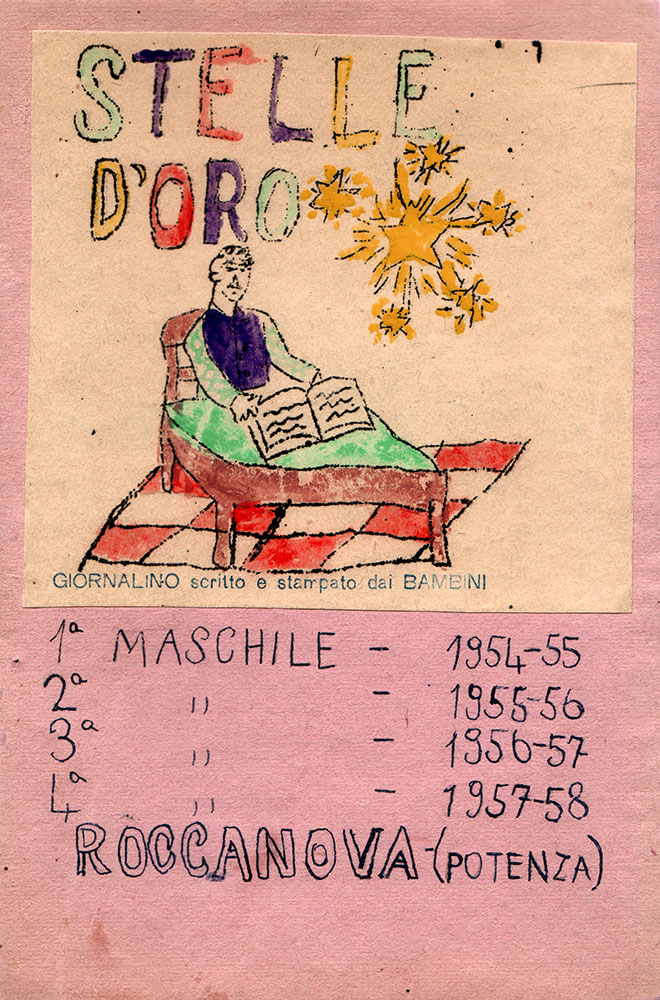 STELLE
D'ORO
GIORNALINO scritto e stampato dai BAMBINI
1ª MASCHILE - 1954-55
2ª " - 1955-56
3ª " - 1956-57
4ª " - 1957-58
ROCCANOVA-(POTENZA)